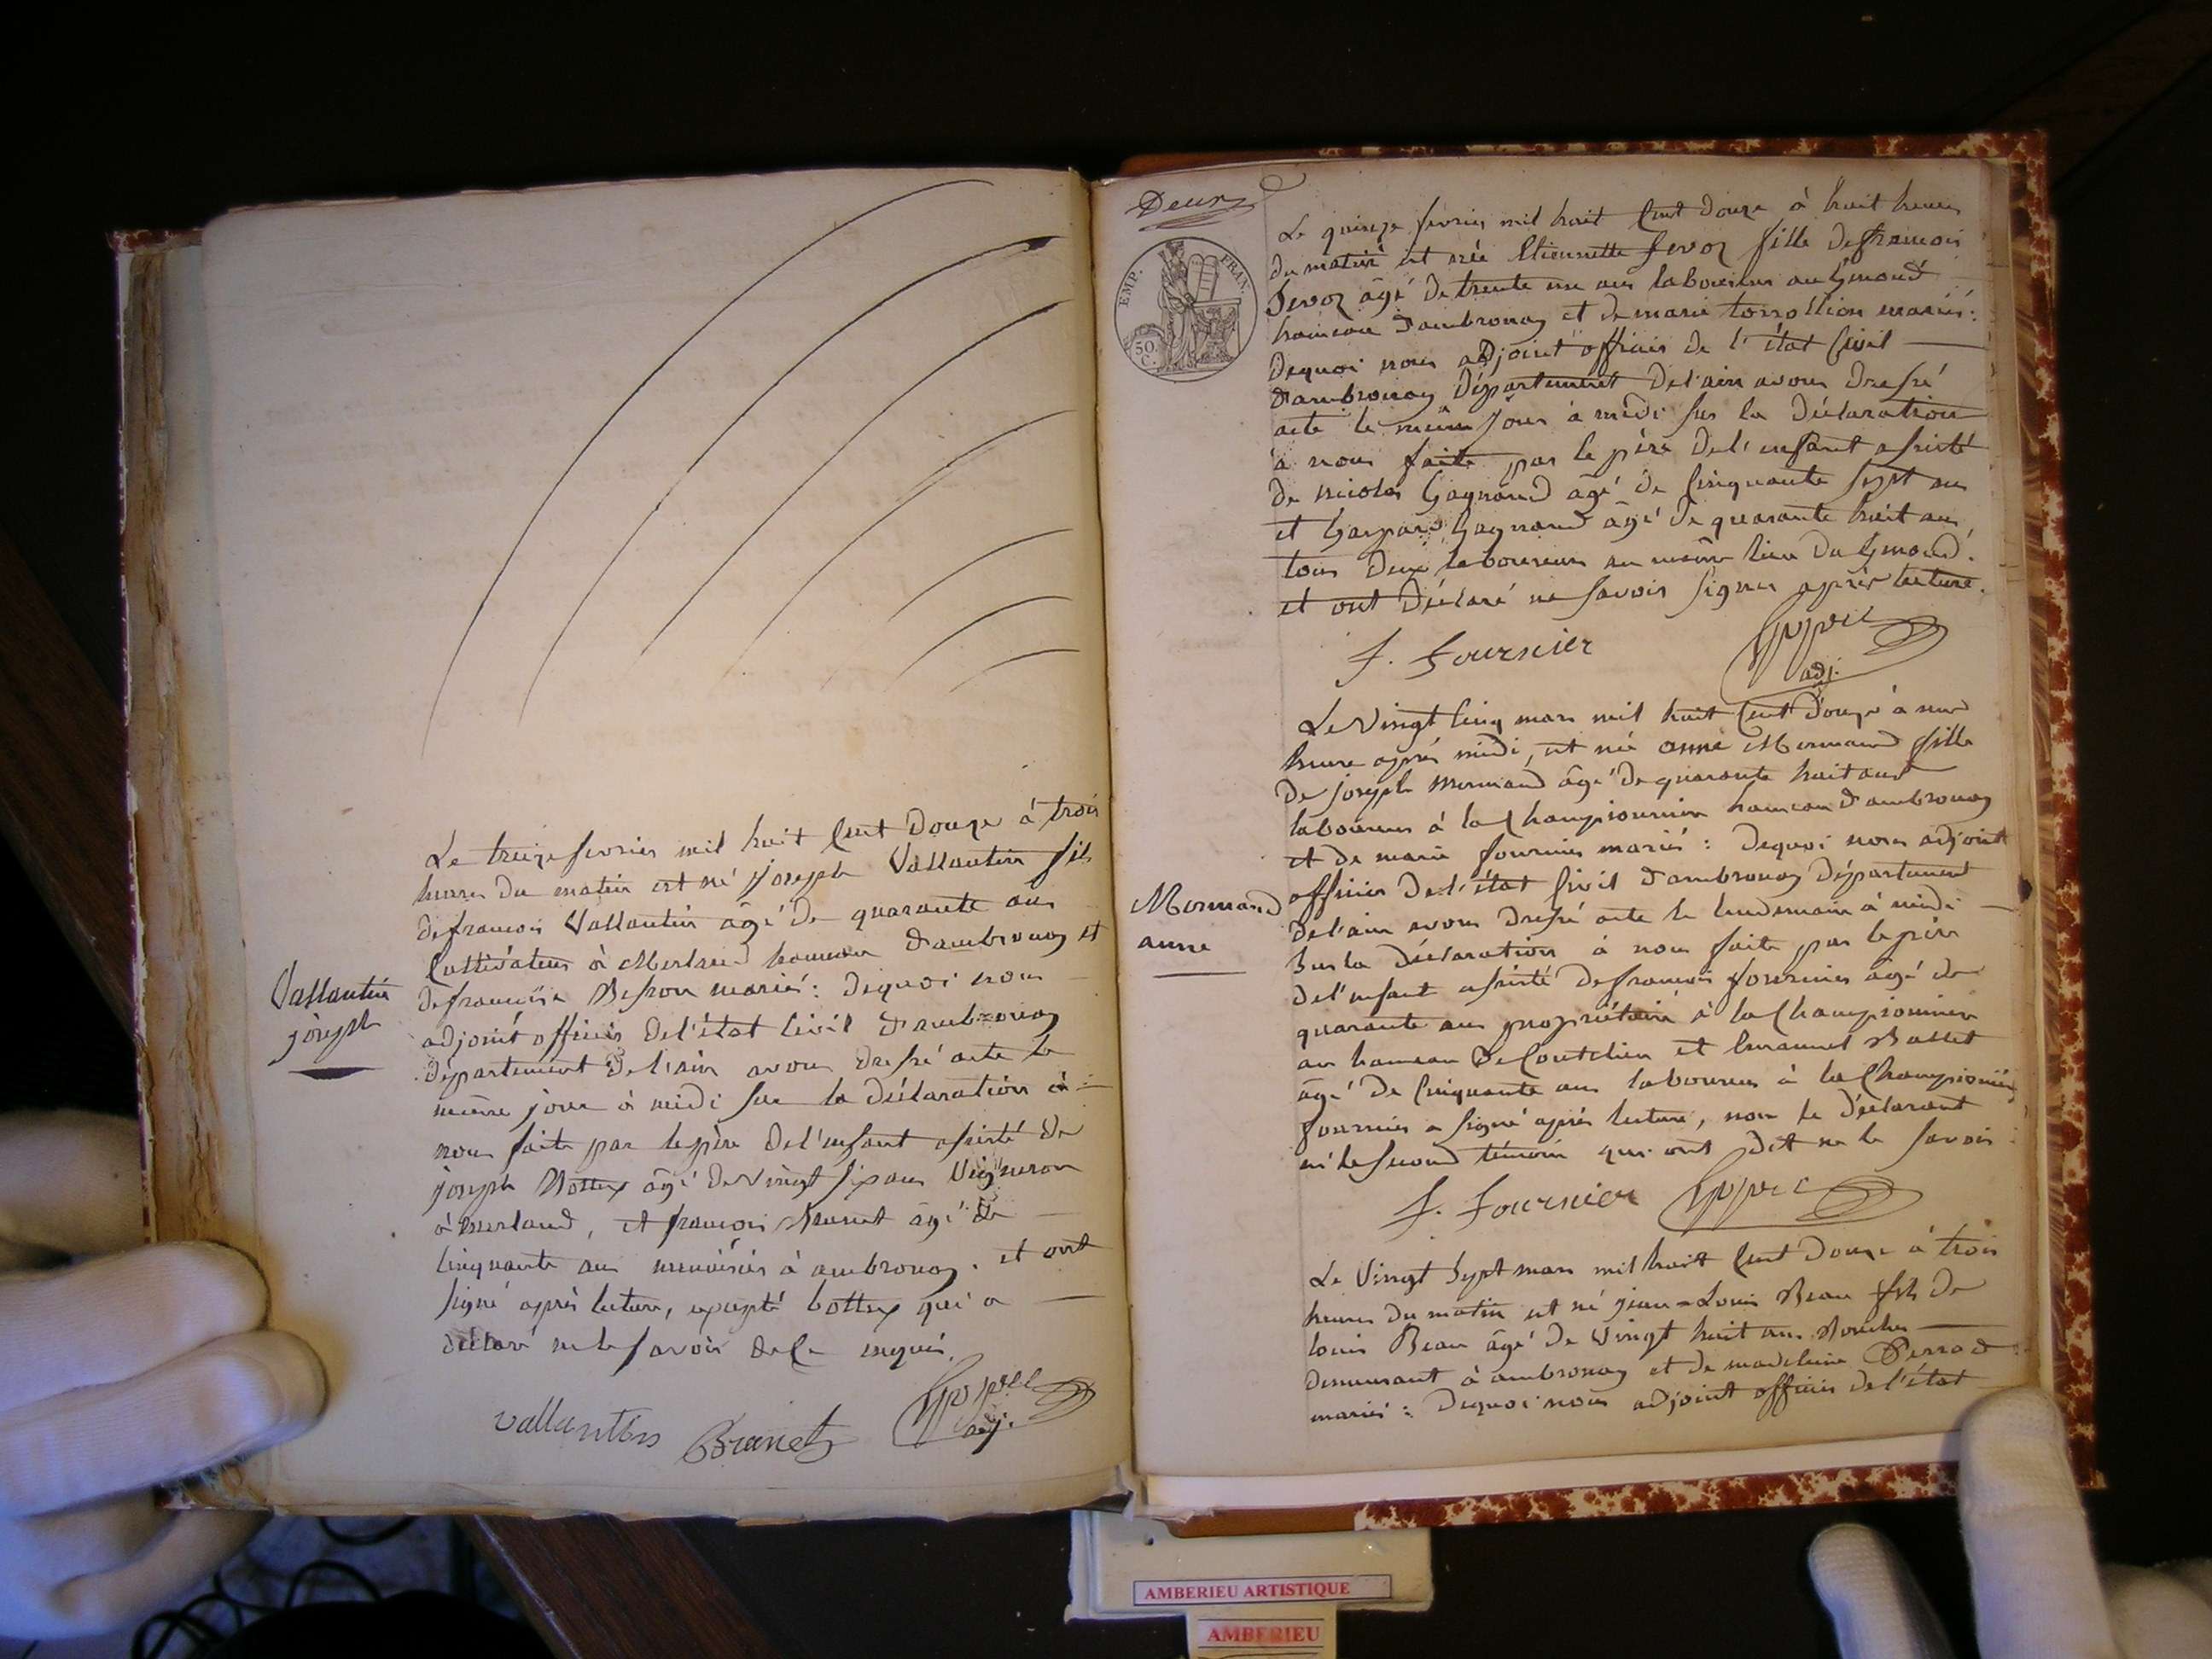 Le treize fevrier mil huit Cent Douze à trois
heures du matin est né joseph Vallantin fils
de francois Vallantin âgé de quarante ans
Cultivateur à Merland hameau d'ambronay et
de francoise mariés : Dequoi nous
adjoint officier de l'état Civil d'ambronay
département de l'ain avons dressé acte le
même jour à midi sur la déclaration à
nous faite par le père de l'enfant assisté de
joseph Bottex âgé de vingt six ans Vigneron
à merland, et francois Brunet âgé de
Cinquante ans menuisier à ambronay. et ont
signé après lecture, excepté bottex qui a
déclaré ne le savoir de ce enquis.
Vallantin
joseph
vallantin Brunet
adj.
Deux
EMP. FRAN.
50 C.
Le quinze fevrier mil huit Cent Douze à huit heures
du matin est née Etiennette fille de francois
âgé de trente un ans laboureur au Gmond
hameau d'ambronay et de marie mariés :
Dequoi nous adjoint officier de l'état Civil
d'ambronay Département de l'ain avons dressé
acte le même jour à midi sur la Déclaration
à nous faite par le père de l'enfant assisté
de nicolas Gagnand âgé de Cinquante sept ans
et Gaspard Gagnand âgé de quarante huit ans
tous deux laboureurs au même lieu du Gmond.
et ont déclaré ne savoir signer après lecture.
f. fournier
adj.
Le vingt Cinq mars mil huit Cent Douze à une
heure après midi, est née anne Mermand fille
de joseph mermand âgé de quarante huit ans
laboureur à la Championnière hameau d'ambronay
et de marie fournier mariés : Dequoi nous adjoint
officier de l'état Civil d'ambronay Département
de l'ain avons dressé acte le lendemain à midi
sur la déclaration à nous faite par le père
de l'enfant assisté de francois fournier âgé de
quarante ans propriétaire à la Championnière
au hameau de Coutelieu et Emanuel Basset
âgé de Cinquante ans laboureur à la Championnière
fournier a signé après lecture, non le déclarant
ni le second témoin qui ont dit ne le savoir
Mermand
anne
f. fournier
Le Vingt Sept mars mil huit Cent Douze à trois
heures du matin est né jean-Louis Beau fils de
louis Beau âgé de Vingt huit ans Boucher
demeurant à ambronay et de madeleine Perrod
mariés : Dequoi nous adjoint officier de l'état
AMBERIEU ARTISTIQUE
AMBERIEU